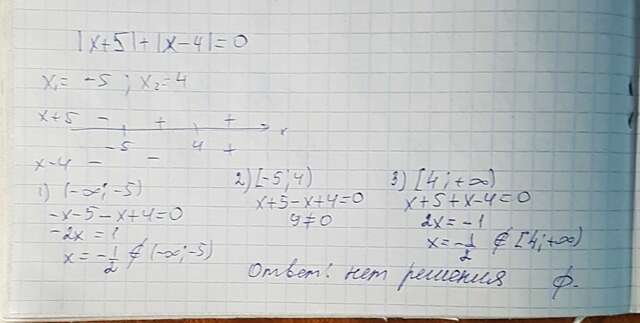 |x+5|+|x-4|=0
x₁= -5 ; x₂=4
x+5 - + + x
-5 4 +
x-4 - -
1) (-∞;-5)
-x-5-x+4=0
-2x=1
x=-1/2 ∉ (-∞;-5)
2) [-5;4)
x+5-x+4=0
9≠0
3) [4;+∞)
x+5+x-4=0
2x=-1
x=-1/2 ∉ [4;+∞)
Ответ: нет решения ∅.